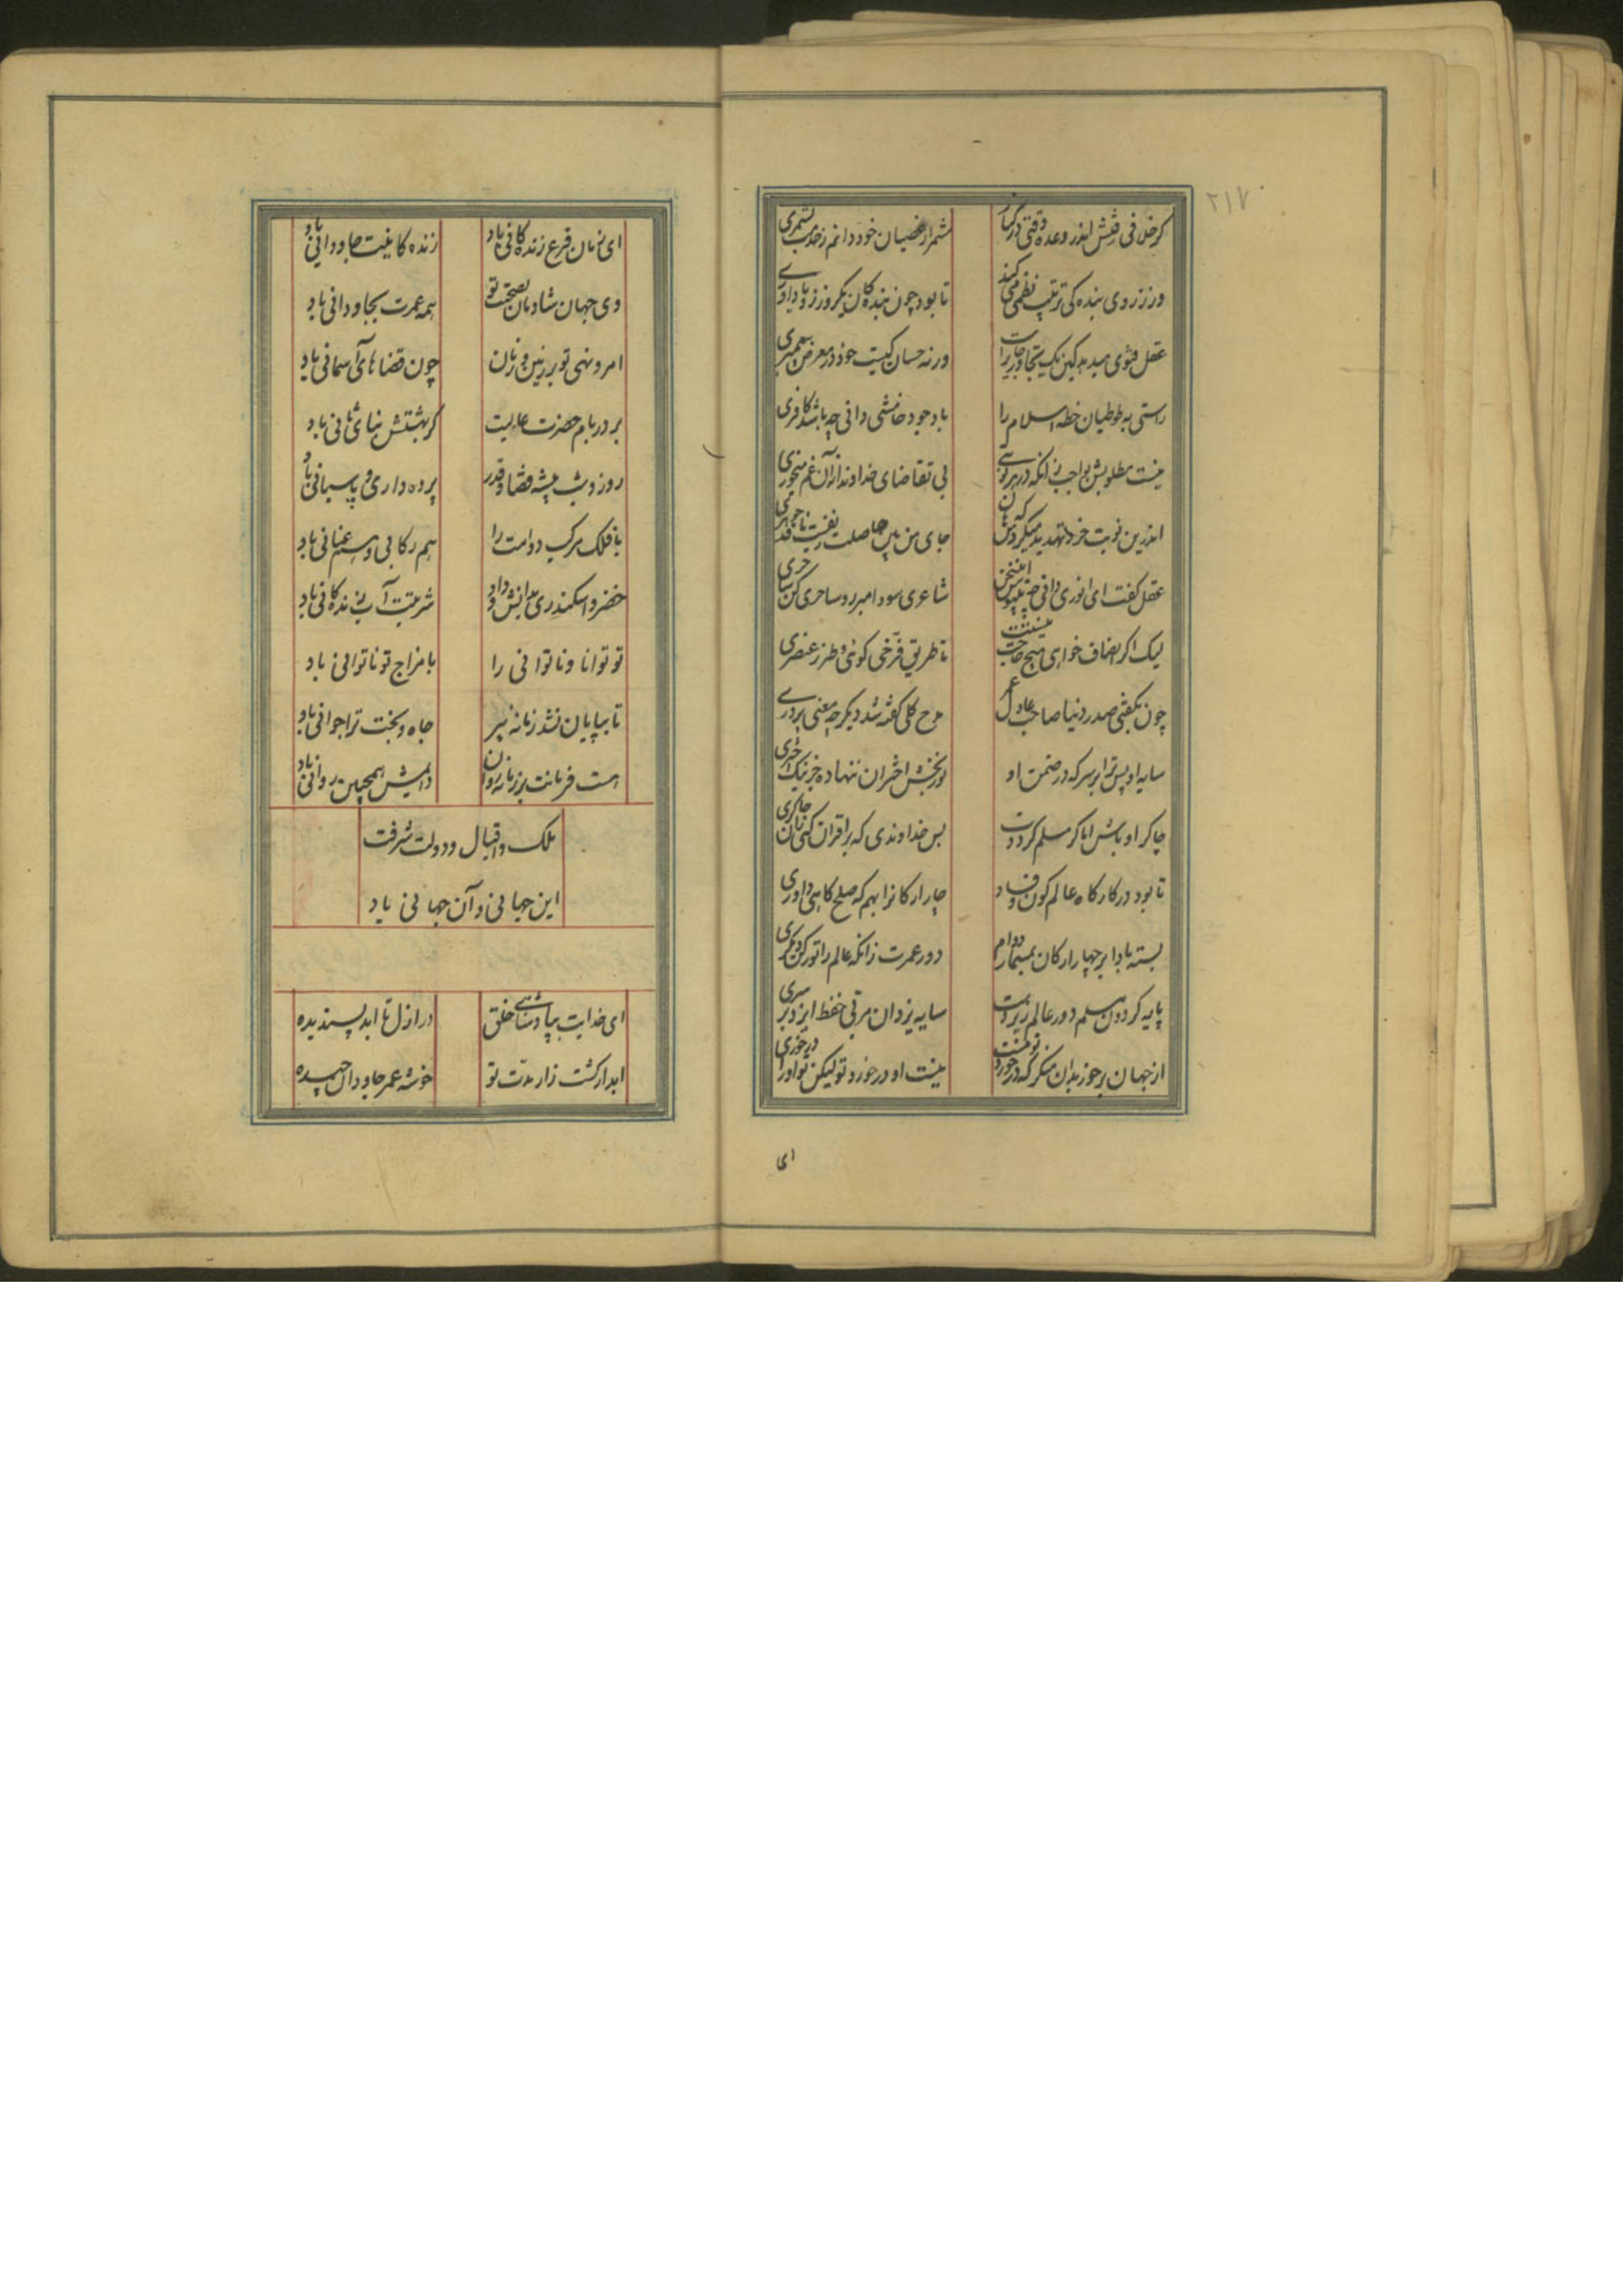 ۲۱۷
کر خلافی رفتش اندر وعده وقتی در گذار
شمر از عصیان خود دانم زخدمت نشمری
ور ز روی بنده کی ترتیب نظمی می کند
تا بود چون بنده کان یکروز زو یادآوری
عقل فتوی میدهد کین یک تجاوز جایز است
ورنه حسان کیست خود در معرض پیغمبری
راستی به طوطیان خطه اسلام را
با وجود خامشی دانی چه باشد کافری
نیست مطلوبش بواجب زانکه در هر نوبتی
بی تقاضای خداوند از آن غم میخوری
اندرین نوبت خرد تهدید میکردش که هان
جای من بین حاصلت
عقل گفت ای انوری دانی چه
شاعری سودا مبر رو ساحری کن ساحری
لیک اگر انصاف خواهی هیچ حاجت نیستت
تا طریق فرّخی گوئی و طرز عنصری
چون بگفتی صدر دنیا صاحب عادل عمر
مدح کلی گفته شد دیگر چه معنی پروری
سایه او بس ترا بر سر که در ضمن او
نور بخش اختران ننهاده جز نیک اختری
چاکر او باش اما گر مسلم کردت
بس خداوندی که بر اقران کنی زان چاکری
تا بود در کارگاه عالم کون و فساد
چار ارکانرا بهم که صلح کاهی داوری
بسته بادا بر چهار ارکان بمسمار دوام
دور عمرت زانکه عالم را تو رکن دیگری
پایه گردون مسلم دور عالم زیر دست
سایه یزدان مربّی حفظ ایزد بر سری
از جهان برخور بدان منکر که در خورد تو نیست
نیست او در خورد تو لیکن تو او را درخوری
ای
ای زمان فرع زنده کانی باد
زنده کانیت جاودانی باد
وی جهان شادمان بصحبت تو
همه عمرت بجاودانی باد
امر و نهی تو بر زمین و زمان
چون قضاهای آسمانی باد
بر در بام حضرت عالیت
کر بهشتش بنای ثانی باد
روز و شب پیشه قضا و قدر
پرده داری و پاسبانی باد
با فلک مرکب دوامت را
هم رکابی و هم عنانی باد
خضر و اسکندری بدانش و داد
شربتت آب زنده کانی باد
تو توانا و ناتوانی را
با مزاج تو ناتوانی باد
تا بپایان نشد زمانه پیر
جاه و بخت ترا جوانی باد
هست فرمانت بر زمانه روان
دایمش همچنین روانی باد
ملک و اقبال و دولت شرفت
این جهانی و آن جهانی باد
ای خدایت بپادشاهی خلق
در ازل تا ابد پسندیده
ابد از کشت زار مدّت تو
خوشه عمر جاودان چیده